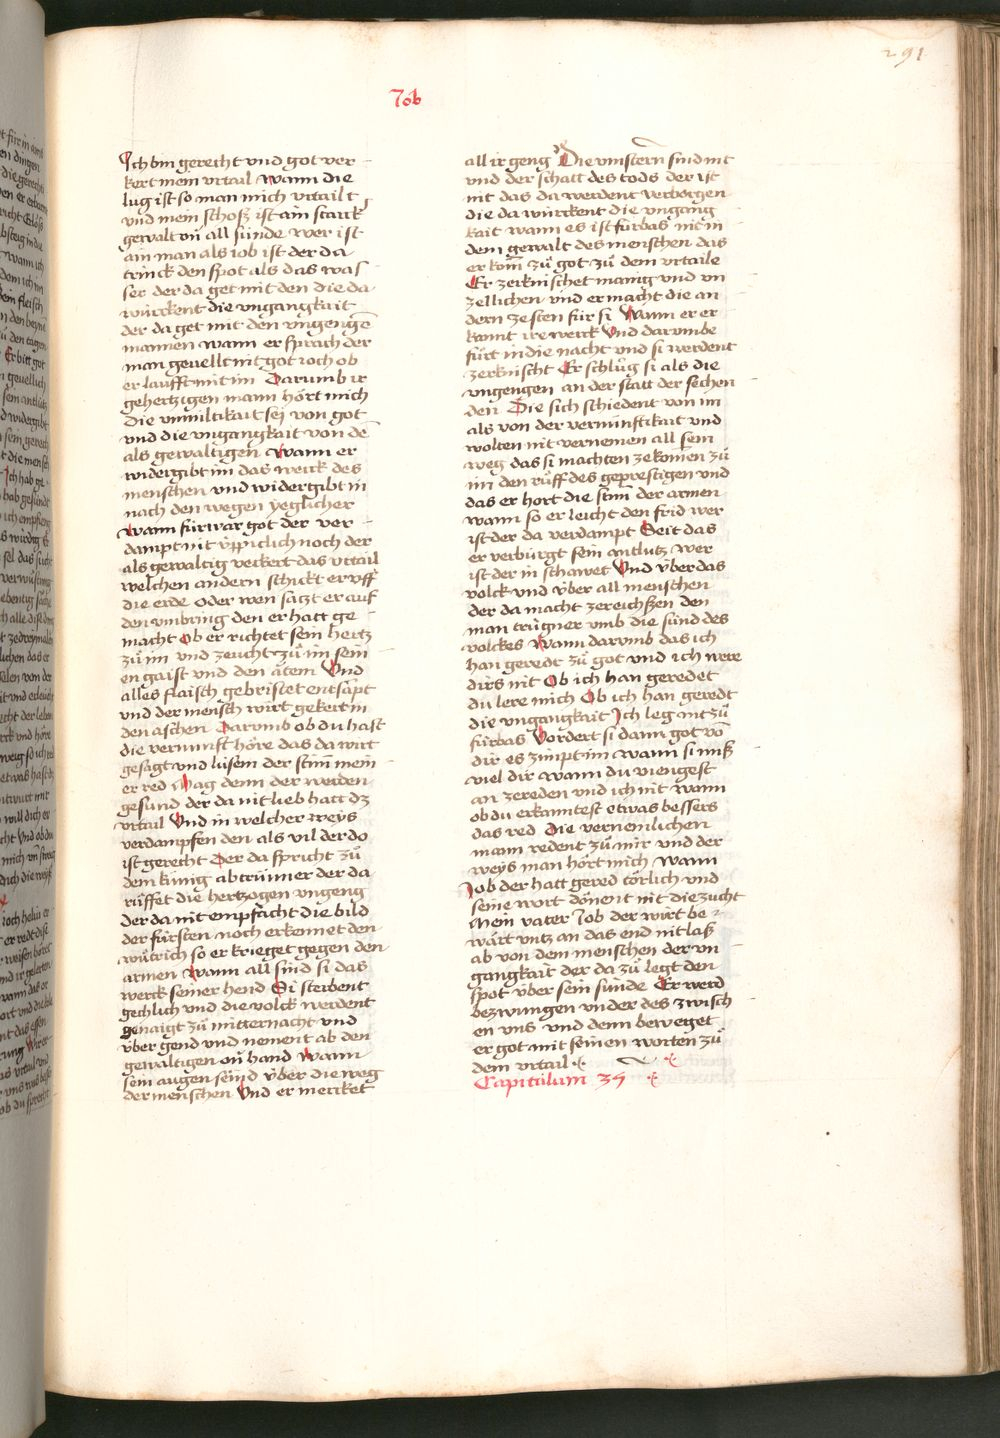 291
Job
Ich bin gerecht vnd got ver
kert mein vrtail Wann die
lug ist so man mich vrtailt
vnd mein schoß ist ain starck
gewalt on all sünde wer ist
ain man als iob ist der da
trinck den spot als das was
ser der da get mit den die da
würckent die vngangkait
der da get mit den vngengē
mannen wann er sprach der
man geuellt nit got ioch ob
er laufft mit im Darumb ir
gehertzigen mann hört mich
die vnmiltikait sej von got
vnd die vngangkait von dē
als gewaltigen Wann er
widergibt im das werck des
menschen vnd widergibt in
nach den wegen yeglicher
wann fürwar got der ver
dampt nit vppiclich noch der
als gewaltig verkert das vrtail
welchen andern schickt er vff
die erde oder wen sätzt er auf
den vmbring den er hatt ge
macht Ob er richtet sein hertz
zů im vnd zeucht zů im sein
en gaist vnd den ätem Vnd
alles flaisch gebristet entsāpt
vnd der mensch wirt gekert in
den äschen Darumb ob du hast
die vernunft höre das da wirt
gesagt vnd lusem der stim mein
er red Mag denn der werden
gesund der da nit lieb hatt dz
vrtail Vnd in welcher weys
verdampfen den als vil der do
ist gerecht Der da spricht zů
dem künig abtrünner der da
rüffet die hertzogen vngeng
der da nit empfacht die bild
der fürsten noch erkennet den
wütrich so er krieget gegen den
armen Wann all sind si das
werck seiner hend Si sterbent
gechlich vnd die volck werdent
genaigt zů mitternacht vnd
über gend vnd nement ab den
gewaltigen on hand Wann
sein augen seind über die weg
der menschen Vnd er mercket
all ir geng Die vinstern sind nit
vnd der schatt des tods der ist
nit das da werdent verborgen
die da würckent die vngang
kait wann es ist fürbas nit in
dem gewalt des menschen das
er kom̄ zů got zů dem vrtaile
Er zerknischet manig vnd vn
zellichen vnd er macht die an
dern ze sten für si Wann er er
kannt ire werck Vnd darumbe
fürt in die nacht vnd si werdent
zerknischt Er schlůg si als die
vngengen an der statt der sechen
den Die sich schiedent von im
als von der vernunftikait vnd
wolten nit vernemen all sein
weg das si machten ze komen zů
im den rüff des geprestigen vnd
das er hort die stim̄ der armen
wann so er leicht den frid wer
ist der da verdampt Seit das
er verbürgt sein antlutz wer
ist der in schawet Vnd über das
volck vnd über all menschen
der da macht ze reichßen den
man trügner vmb die sünd des
volckes Wann darumb das ich
han geredt zů got vnd ich were
dirs nit Ob ich han geredet
du lere mich Ob ich han geredt
die vngangkait Ich leg nit zů
fürbas Vordert si dann got vō
dir es zimpt im wann si miß
viel dir wann du viengest
an zereden vnd ich nit wann
ob du erkanntest etwas bessers
das red Die vernemlichen
mann redent zů mir vnd der
weys man hört mich Wann
Job der hatt gered törlich vnd
seine wort dönent nit die zucht
Mein vater Job der wirt be
wärt vntz an das end nit laß
ab von dem menschen der vn
gangkait der da zů legt den
spot über sein sünde Er werd
bezwungen vnder des zwisch
en vns vnd denn beweget
er got mit seinen worten zů
dem vrtail
Capitulum 35